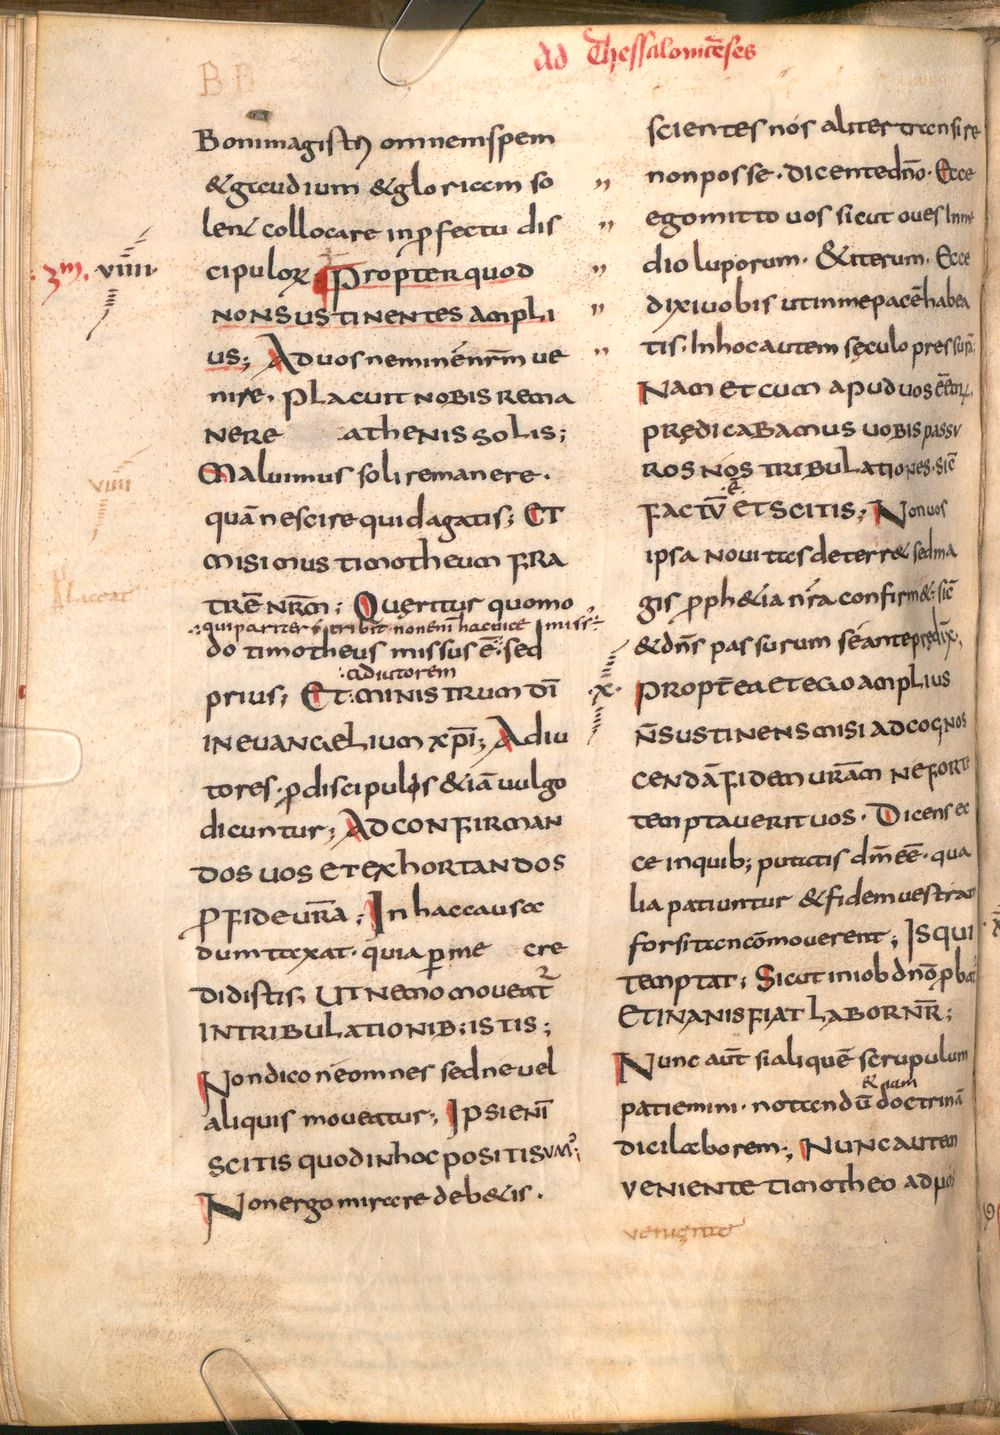 Ad Thessalonicēses
Boni magistri omnem spem
& gaudium & gloriam so
lent collocare in ꝓfectu dis
.3m. viiii. cipuloꝝ Propter quod
non sustinentes ampli
us; Ad uos neminē nr̄m ue
nire. Placuit nobis rema
nere athenis solis;
Maluimus soli remanere.
viiii
quā nescire quid agatis; Et
misimus timotheum fra
placeat
trē nr̄m; Quęritur quomo
qui pariter scribit non enī hac uice miss;
do timotheus missus ē. sed
adiutorem
prius; Et ministrum dī
in euangelium xp̄i; Adiu
tores. ꝓ discipulos & iā uulgo
dicuntur; Ad confirman
dos uos et exhortandos
ꝓ fide ur̄a; In hac causa
dum taxat. quia ꝑ me cre
didistis; Ut nemo moueat
in tribulationib; istis;
Non dico ne omnes sed ne uel
aliquis moueatur; Ipsi enī
scitis quod in hoc positi sum;
Non ergo mirare deb&is.
scientes nos aliter transire
„ non posse. dicente dn̄o. Ecce
„ ego mitto uos sicut oues In me
„ dio luporum. & iterum. Ecce
„ dixi uobis ut in me pacē habea
„ tis. In hoc autem sęculo pressurā;
Nam et cum apud uos eēm;
prędicabamus uobis passu
ros nos tribulationes. sic̄
&
factū et scitis; Non uos
ipsa nouitas deterr& sed ma
gis ꝓph&ia nr̄a confirm&; sic̄
& dn̄s passurum se ante prędix;
.x. Propt̄ea et ego amplius
n̄ sustinens misi ad cognos
cendā fidem ur̄am ne forte
temptauerit uos. Dicens ec
ce inquib; putatis dm̄ eē. qua
lia patiuntur & fidem uestram
forsitan cōmouerent; Is qui
temptat; Sicut in iob dn̄o ꝓbat
Et inanis fiat labor nr̄;
Nunc aut̄ si aliquē scrupulum
patiemini. notandū doctrinā
dici laborem; Nunc autem
ueniente timotheo ad